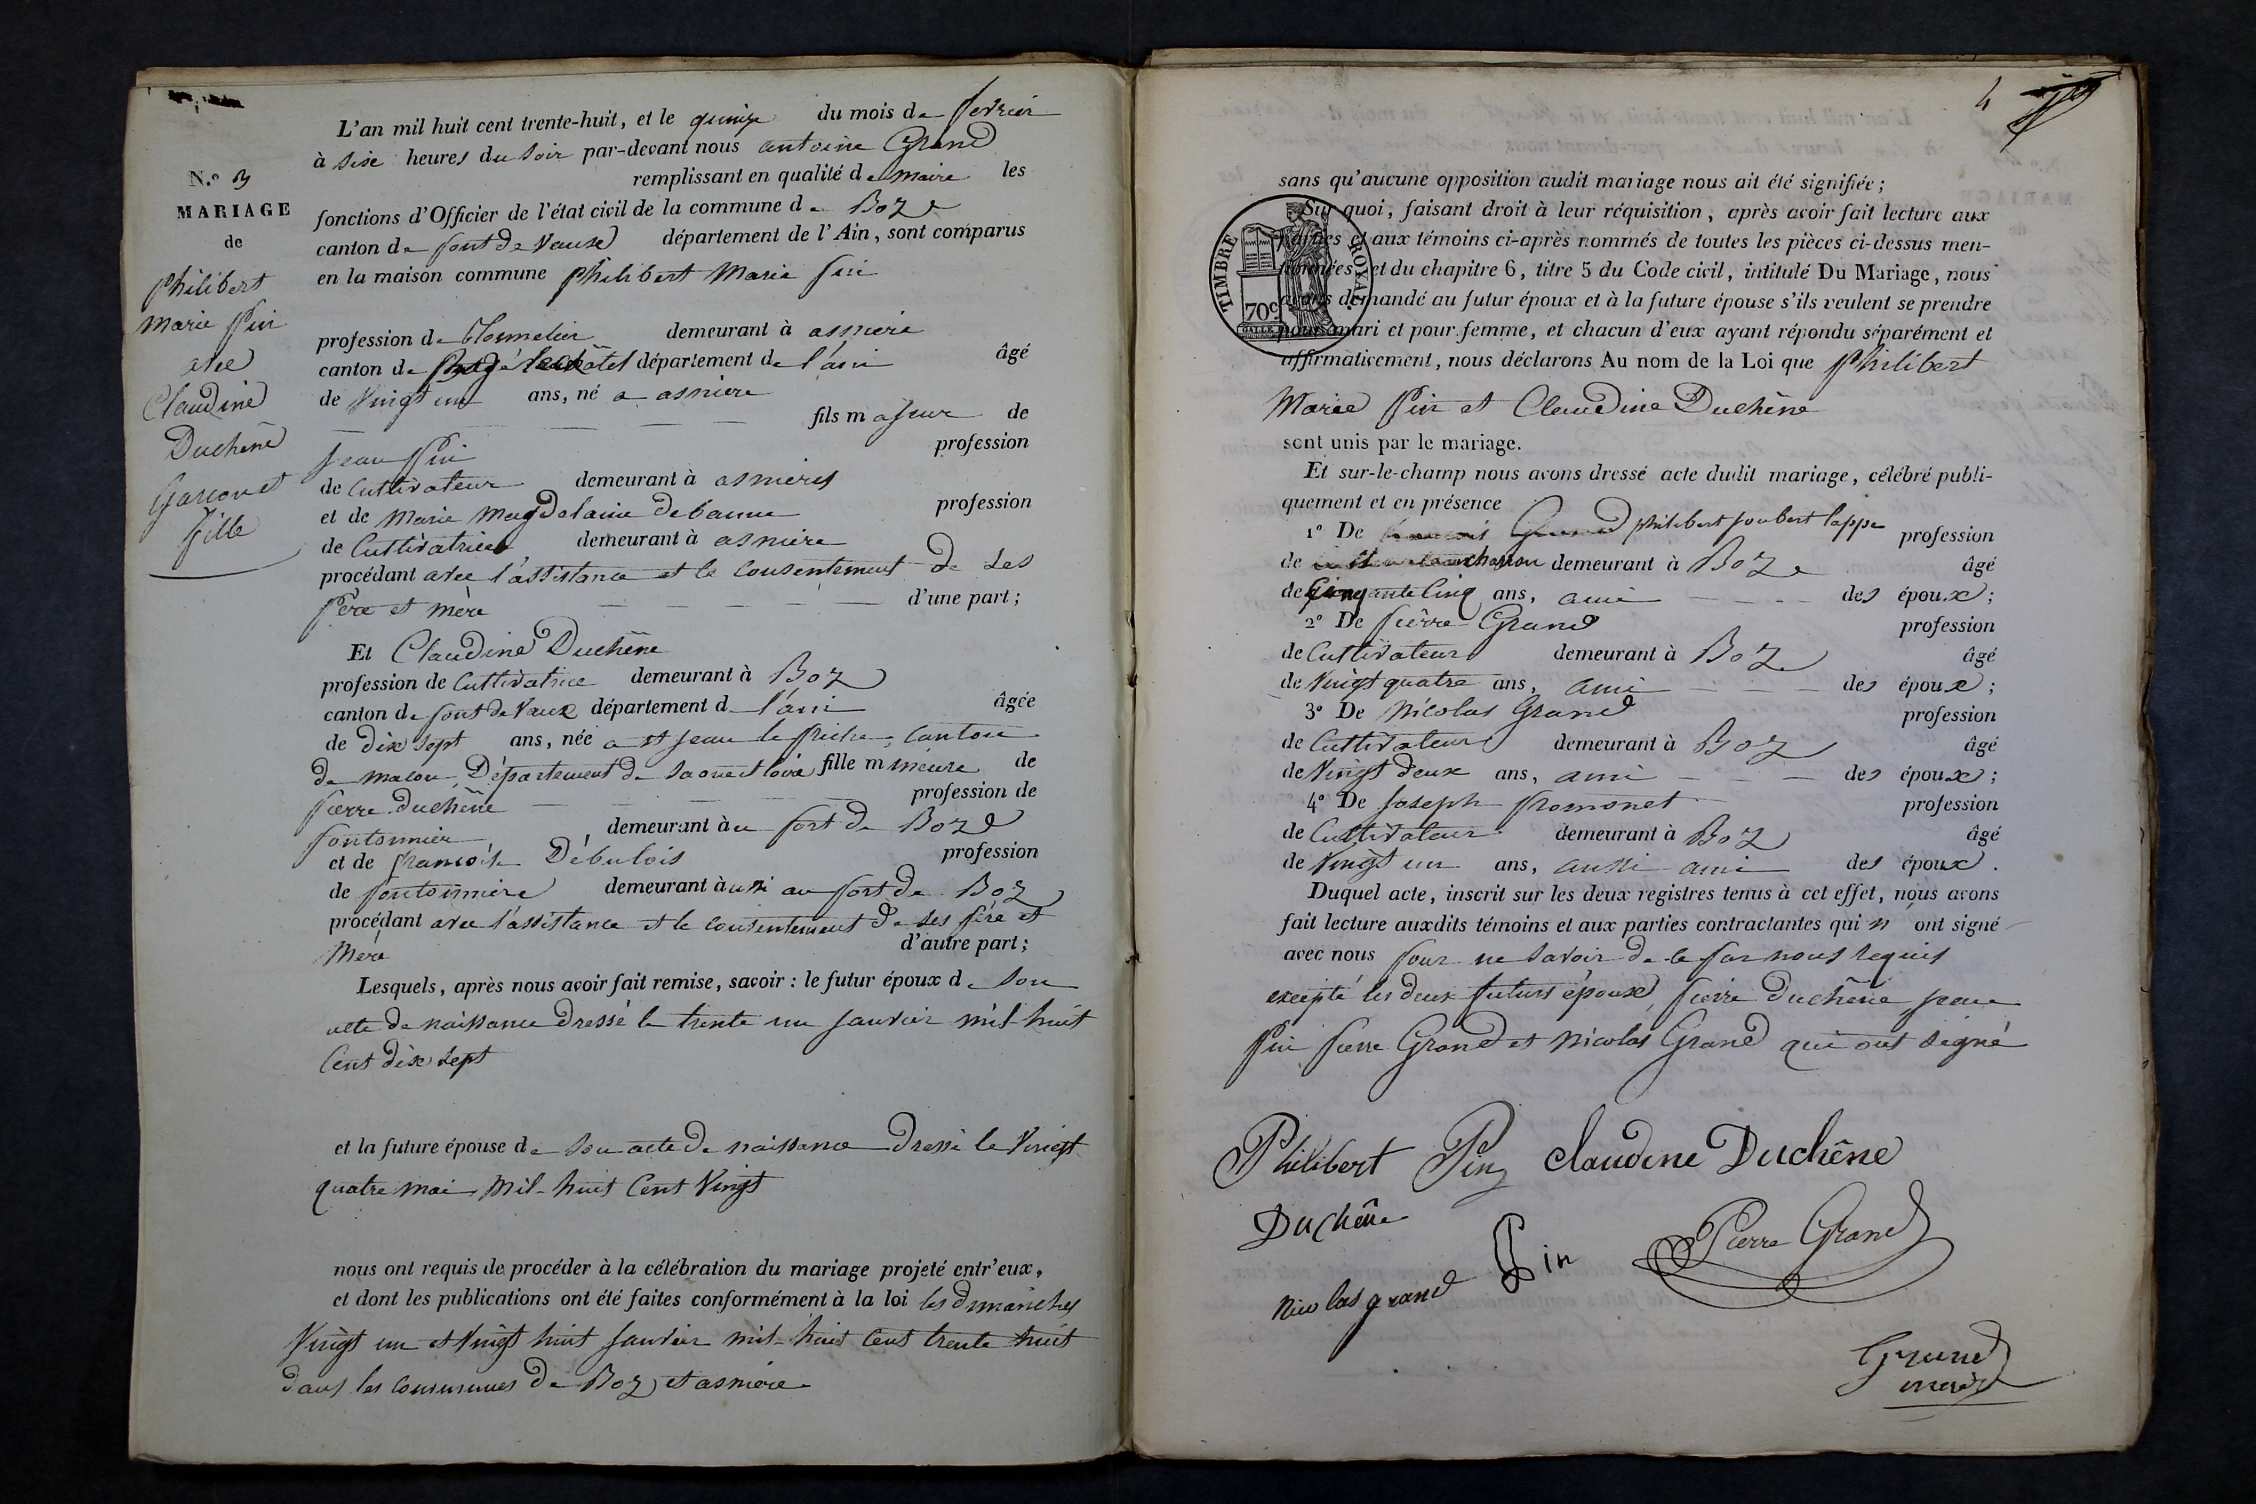 L'an mil huit cent trente-huit, et le quinze du mois de fevrier
à sixe heures du soir par-devant nous antoine Grand
remplissant en qualité de maire les
fonctions d'Officier de l'état civil de la commune de Boz
canton de pont de Vaux département de l'Ain, sont comparus
en la maison commune philibert Marie Pin
N.º 3
MARIAGE
de
philibert
marie Pin
avec
Claudine
Duchêne
Garcon et
fille
profession de demeurant à asniere
canton de département de l'ain âgé
de Vingt un ans, né a asniere
fils majeur de
Jean Pin profession
de Cultivateur demeurant à asnieres
et de Marie Magdelaine debaune profession
de Cultivatrice demeurant à asniere
procédant avec l'assistance et le consentement de ses
Père et mère d'une part;
Et Claudine Duchêne
profession de Cultivatrice demeurant à Boz
canton de pont de Vaux département d l'ain âgée
de dix sept ans, née a st Jean le priche, canton
de macon, Département de Saone et loire fille mineure de
pierre duchêne profession de
pontonnier demeurant àu port de Boz
et de francoise Débulois profession
de pontonnière demeurant àussi au port de Boz
procédant avec l'assistance et le consentement de ses père et
Mère d'autre part;
Lesquels, après nous avoir fait remise, savoir : le futur époux de son
acte de naissance dressé le trente un janvier mil huit
Cent dix sept
et la future épouse de son acte de naissance dressé le Vingt
quatre mai mil-huit Cent Vingt
nous ont requis de procéder à la célébration du mariage projeté entr'eux,
et dont les publications ont été faites conformément à la loi les dimanches
Vingt un et Vingt huit janvier mil-huit Cent trente huit
dans les communes de Boz et asniere
4
sans qu'aucune opposition audit mariage nous ait été signifiée;
Sur quoi, faisant droit à leur réquisition, après avoir fait lecture aux
parties et aux témoins ci-après nommés de toutes les pièces ci-dessus men-
tionnées, et du chapitre 6, titre 5 du Code civil, intitulé Du Mariage, nous
avons demandé au futur époux et à la future épouse s'ils veulent se prendre
pour mari et pour femme, et chacun d'eux ayant répondu séparément et
affirmativement, nous déclarons Au nom de la Loi que Philibert
TIMBRE ROYAL
70c
Marie Pin et Claudine Duchêne
sont unis par le mariage.
Et sur-le-champ nous avons dressé acte dudit mariage, célébré publi-
quement et en présence
1º De philibert joubert lappe profession
de demeurant à Boz âgé
de Cinquante Cinq ans, ami des époux;
2º De pierre Grand profession
de Cultivateur demeurant à Boz âgé
de Vingt quatre ans, ami des époux;
3º De Nicolas Grand profession
de Cultivateur demeurant à Boz âgé
de Vingt deux ans, ami des époux;
4º De Joseph promonet profession
de Cultivateur demeurant à Boz âgé
de Vingt un ans, aussi ami des époux.
Duquel acte, inscrit sur les deux registres tenus à cet effet, nous avons
fait lecture auxdits témoins et aux parties contractantes qui n'ont signé
avec nous pour ne savoir de ce par nous requis
excepté les deux futurs époux, pierre duchêne, jean
Pin pierre Grand et Nicolas Grand qui ont signé
Philibert Pin Claudine Duchêne
Duchêne
Pin Pierre Grand
Nicolas grand
Grand
maire